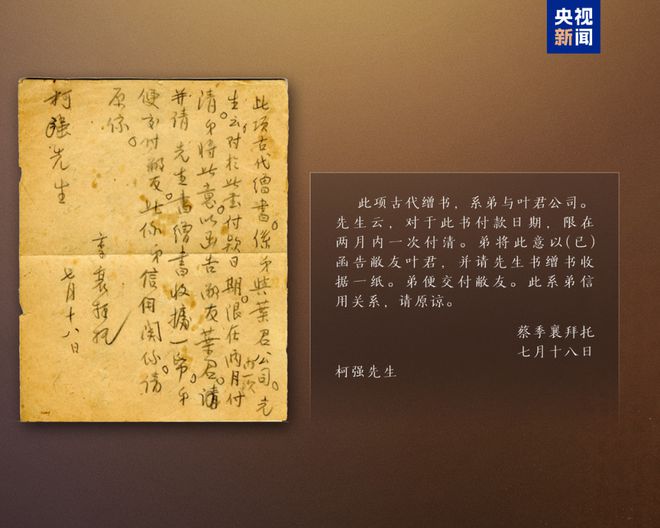 央视
新闻
此项古代缯书系弟与葉君公司。先
生云对於此書付款日期限在两月付
内一次
清。弟将此意以函告敝友葉君。请
并请先生書缯書收據一帋。弟
便交付敝友。此係弟信用関係请
原谅。
季襄拜托
七月十八日
柯强先生
此项古代缯书，系弟与叶君公司。
先生云，对于此书付款日期，限在
两月内一次付清。弟将此意以(已)
函告敝友叶君，并请先生书缯书收
据一纸。弟便交付敝友。此系弟信
用关系，请原谅。
蔡季襄拜托
七月十八日
柯强先生